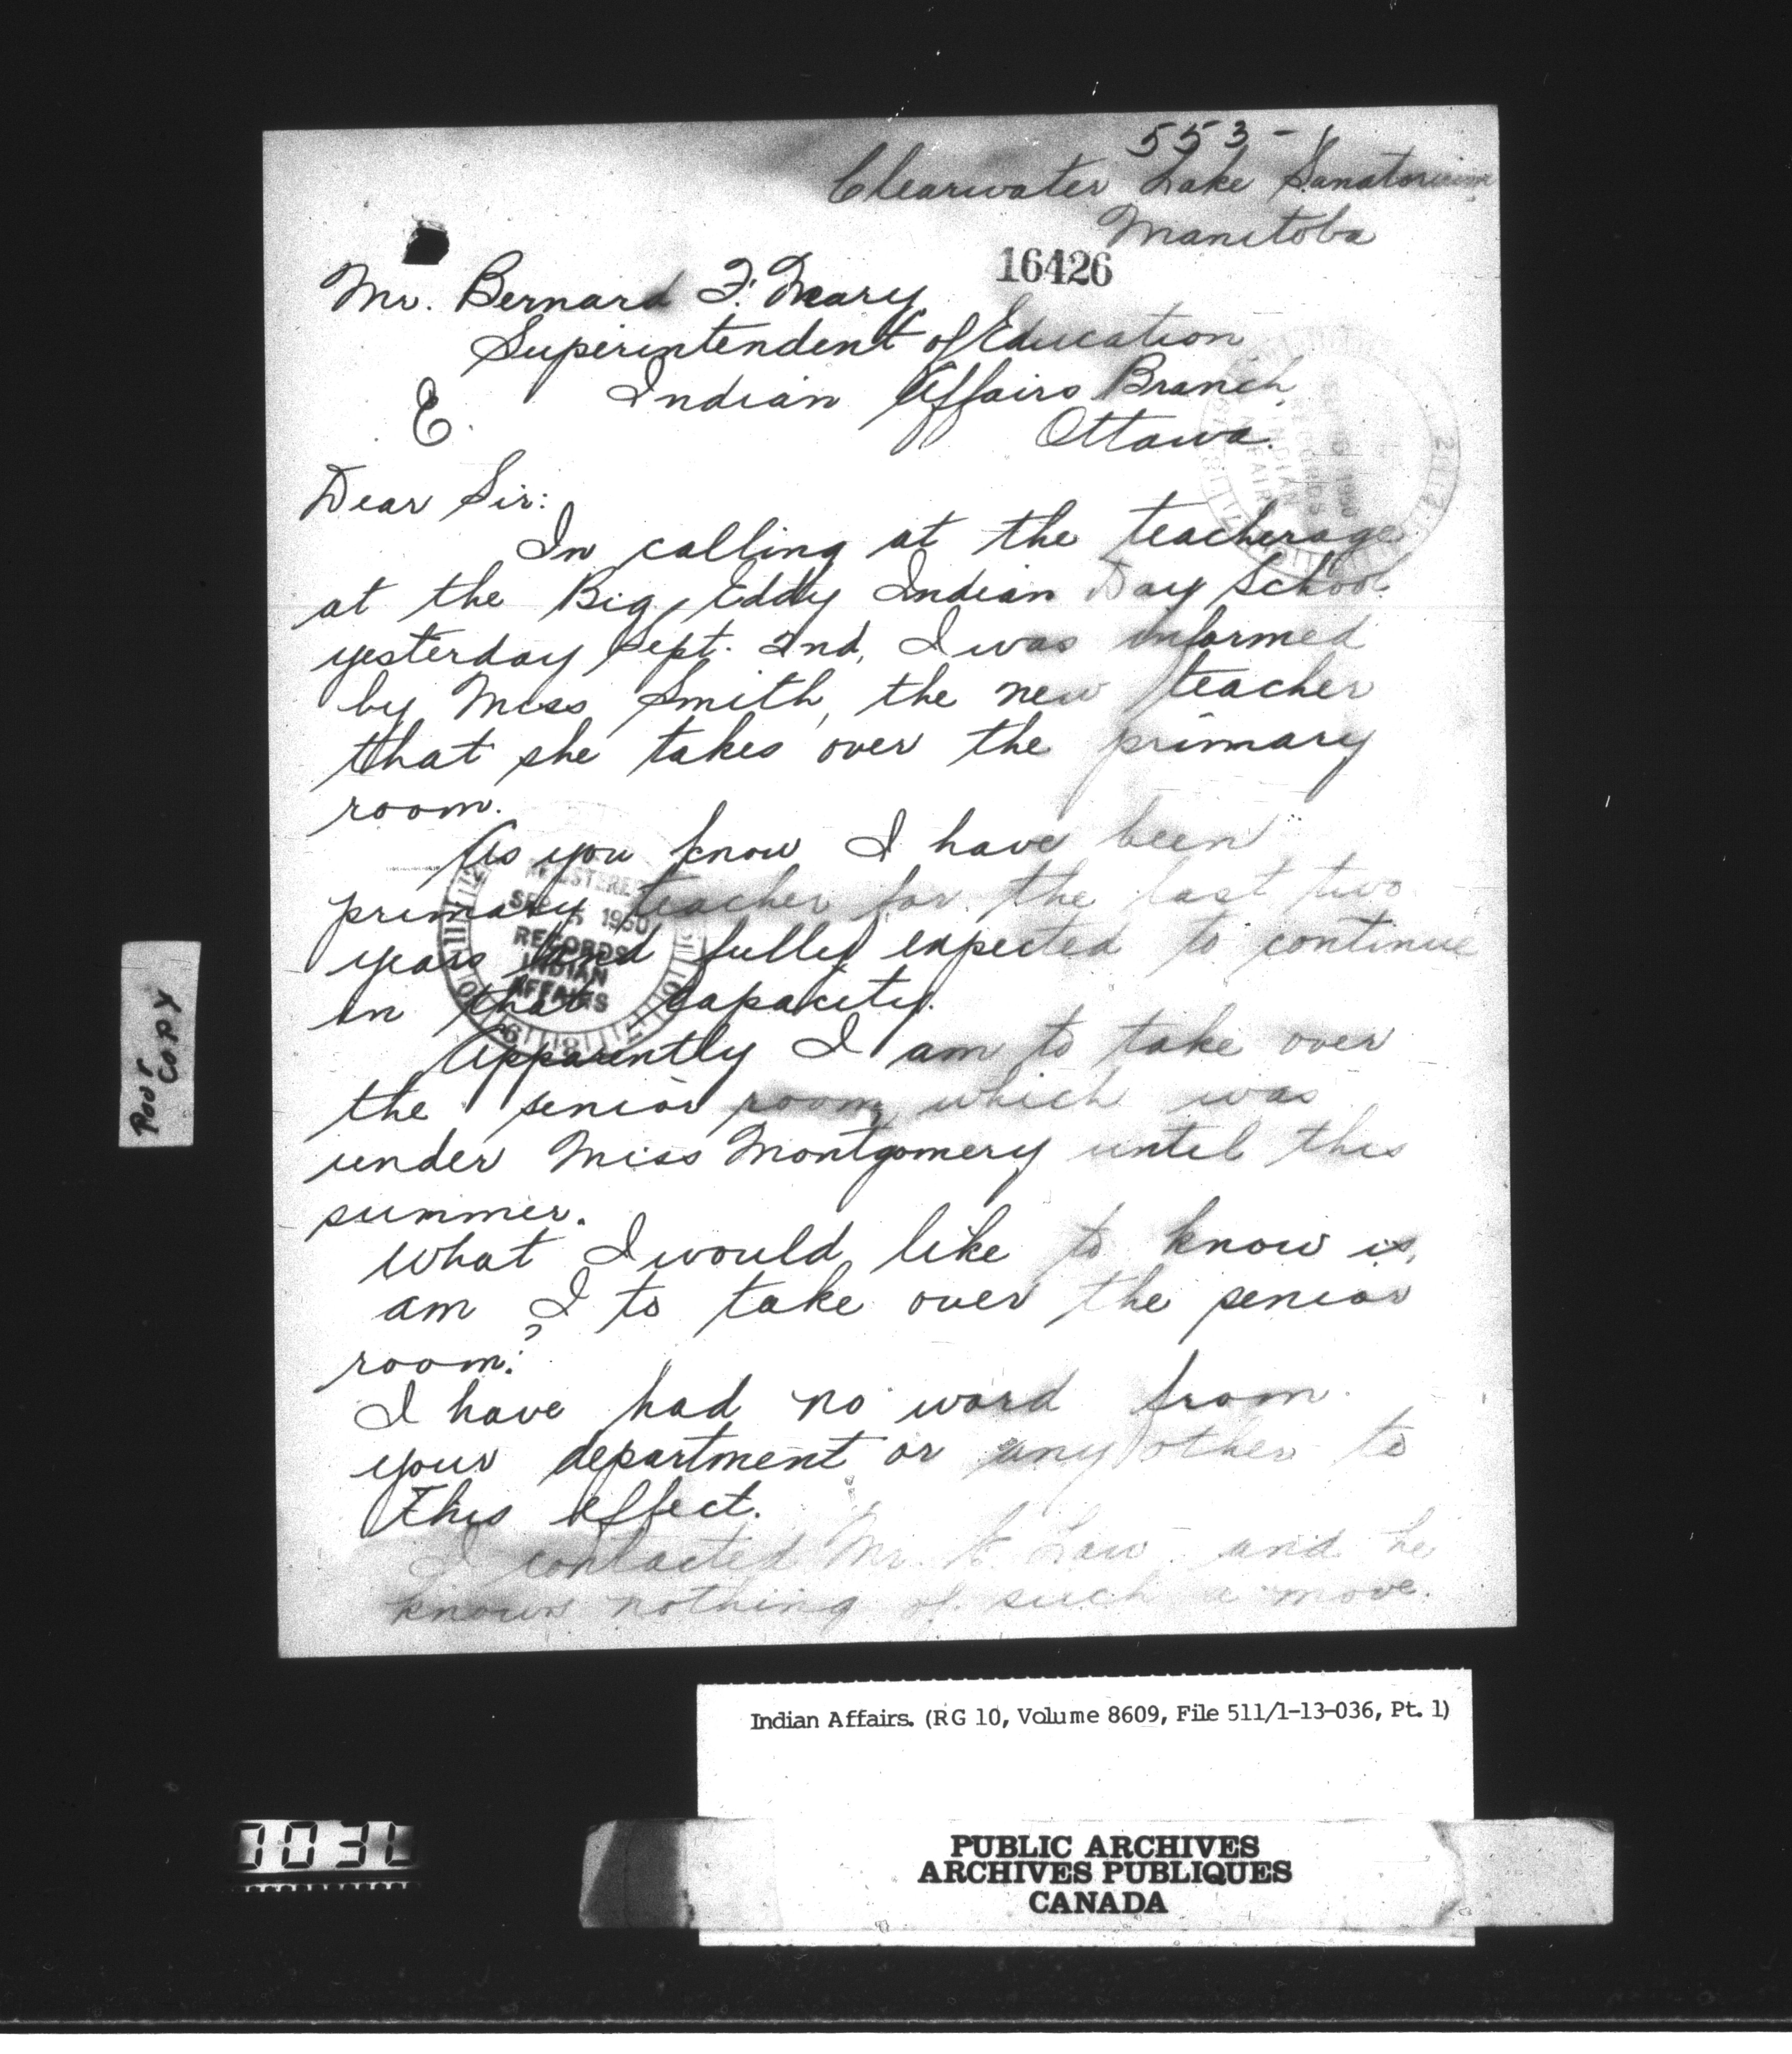 553-
Clearwater Lake Sanatorium
Manitoba
16426
Mr. Bernard F. Neary
Superintendent of Education
E. Indian Affairs Branch,
Ottawa.
Dear Sir:
In calling at the teacherage
at the Big Eddy Indian Day School
yesterday Sept. 2nd, I was informed
by Miss Smith, the new teacher
that she takes over the primary
room.
As you know I have been
primary teacher for the last two
years and fully expected to continue
in that capacity.
REGISTERED
SEP 5 1950
RECORDS
INDIAN
AFFAIRS
Apparently I am to take over
the senior room, which was
under Miss Montgomery until this
summer.
What I would like to know is,
am I to take over the senior
room?
I have had no word from
your department or any other to
this effect.
I contacted Mr. Law and he
knows nothing of such a move.
Poor
Copy
Indian Affairs. (RG 10, Volume 8609, File 511/1-13-036, Pt. 1)
PUBLIC ARCHIVES
ARCHIVES PUBLIQUES
CANADA